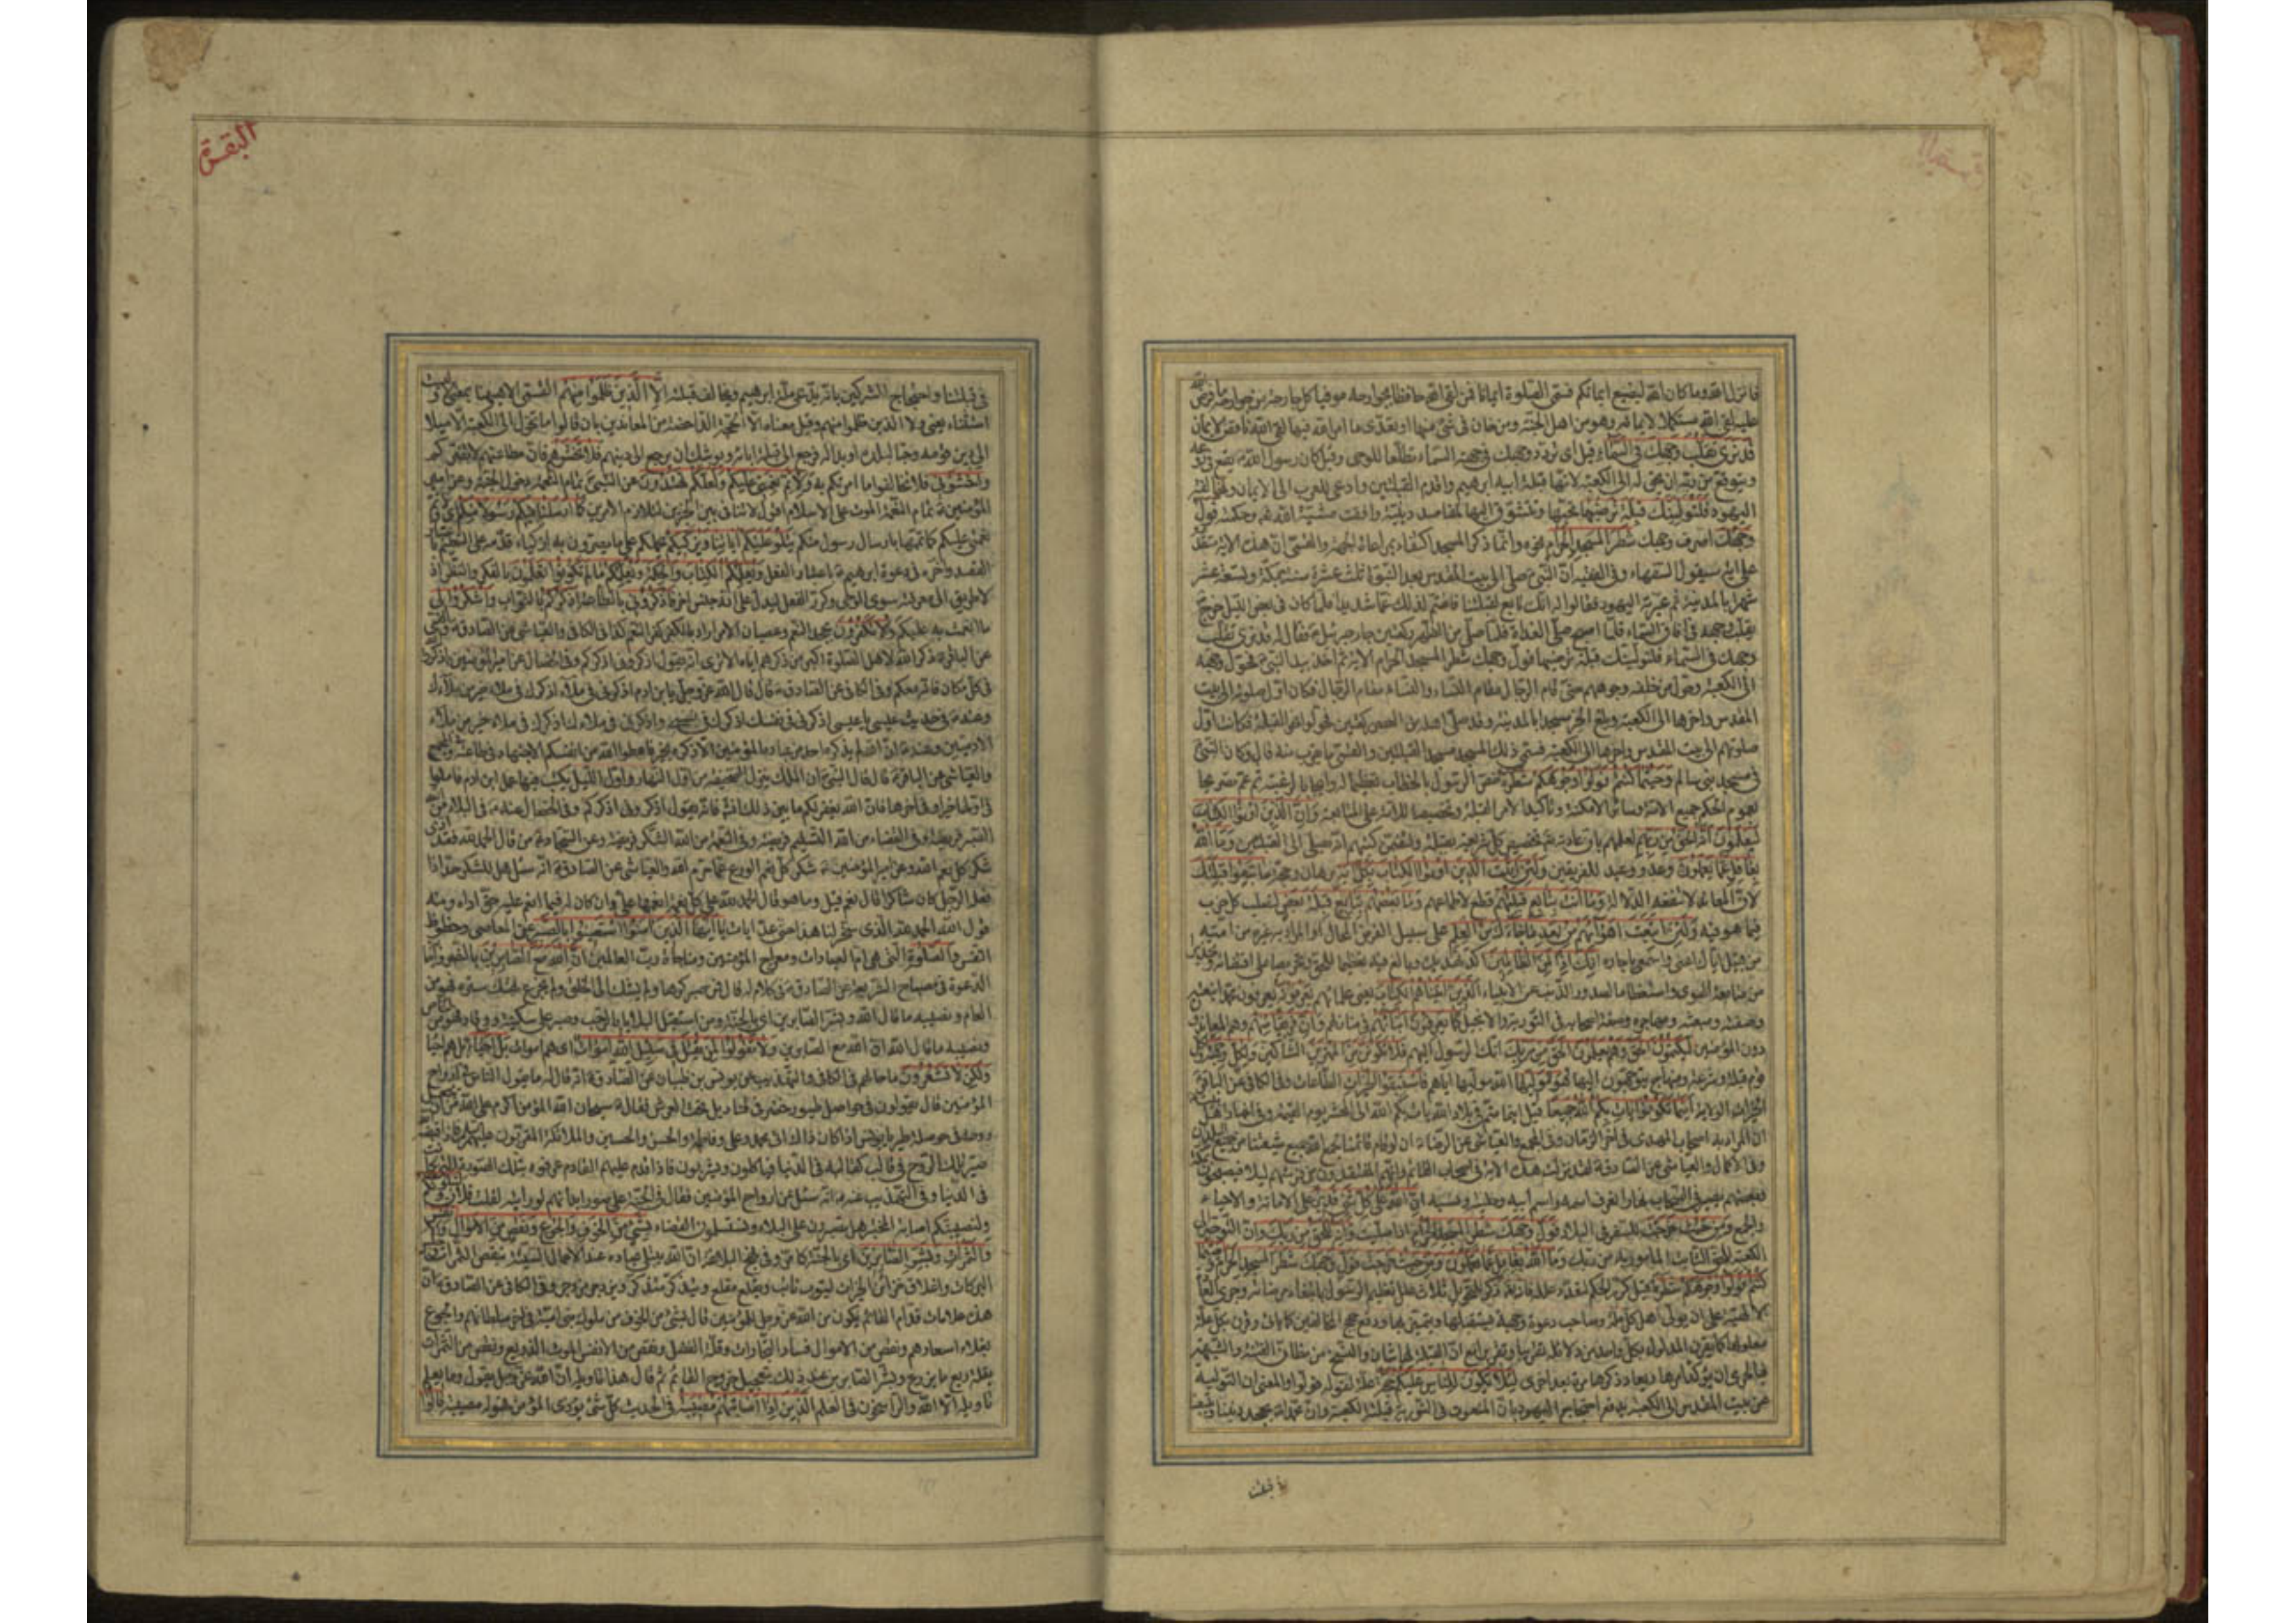 فانزل الله وما كان الله ليضيع ايمانكم فسمى الصلوة ايمانا فمن لقى الله حافظا لجوارحه موفيا كل جارحة من جوارحه ما فرض الله
عليه لقى الله مستكملا لايمانه وهو من اهل الجنة ومن خان فى شئ منها او تعدى ما امر الله فيها لقى الله ناقص الايمان
قد نرى تقلب وجهك فى السماء قيل اى تردد وجهك فى جهة السماء تطلعا للوحى وقيل كان رسول الله
ويتوقع من ربه ان يحوله الى الكعبة لانها قبلة ابيه ابرهيم واقدم القبلتين وادعى للعرب الى الايمان
اليهود فلنولينك قبلة ترضيها تحبها وتتشوق اليها لمقاصد دينية وافقت مشية الله وحكمته فول
وجهك اصرف وجهك شطر المسجد الحرام نحوه وانما ذكر المسجد اكتفاء بمراعاة الجهة والقمى ان هذه الاية متقدمة
على اية سيقول السفهاء وفى الفقيه ان النبى صلى الى بيت المقدس بعد النبوة ثلث عشرة سنة بمكة وتسعة عشر
شهرا بالمدينة ثم عيرته اليهود فقالوا له انك تابع لقبلتنا فاغتم لذلك غما شديدا فلما كان فى بعض الليل خرج
يقلب وجهه فى افاق السماء فلما اصبح صلى الغداة فلما صلى من الظهر ركعتين جاء جبرئيل فقال له قد نرى تقلب
وجهك فى السماء فلنولينك قبلة ترضيها فول وجهك شطر المسجد الحرام الاية ثم اخذ بيد النبى فحول وجهه
الى الكعبة وحول من خلفه وجوههم حتى قام الرجال مقام النساء والنساء مقام الرجال فكان اول صلوته الى بيت
المقدس واخرها الى الكعبة وبلغ الخبر مسجدا بالمدينة وقد صلى اهله من العصر ركعتين فحولوا نحو القبلة فكانت اول
صلوتهم الى بيت المقدس واخرها الى الكعبة فسمى ذلك المسجد مسجد القبلتين والقمى ما يقرب منه قال وكان النبى
فى مسجد بنى سالم وحيثما كنتم فولوا وجوهكم شطره خص الرسول بالخطاب تعظيما له وايجابا لرغبته ثم عمم تصريحا
بعموم الحكم جميع الامة وسائر الامكنة وتاكيدا لامر القبلة وتحضيضا للامة على المتابعة وان الذين اوتوا الكتاب
ليعلمون انه الحق من ربهم لعلمهم بان عادته تخصيص كل شريعة بقبلة ولتضمن كتبهم انه يصلى الى القبلتين وما الله
بغافل عما يعملون وعد ووعيد للفريقين ولئن اتيت الذين اوتوا الكتاب بكل اية برهان وحجة ما تبعوا قبلتك
لان المعاند لا تنفعه الدلالة وما انت بتابع قبلتهم قطع لاطماعهم وما بعضهم بتابع قبلة بعض لتصلب كل حزب
فيما هو فيه ولئن اتبعت اهوآءهم من بعد ما جاءك من العلم على سبيل الفرض المحال
انك اذا لمن الظالمين
الذين اتيناهم الكتاب يعنى علماءهم يعرفونه
كما يعرفون ابناءهم فى منازلهم وان فريقا منهم وهم المعاندون
دون المؤمنين ليكتمون الحق وهم يعلمون الحق من ربك انك الرسول اليهم فلا تكونن من الممترين الشاكين ولكل وجهة ولكل
قوم قبلة وشرعة ومنهاج يتوجهون اليها هو موليها الله موليها اياهم فاستبقوا الخيرات الطاعات وفى الكافى عن الباقر
الخيرات الولاية اينما تكونوا يات بكم الله جميعا قيل اينما متم فى بلاد الله يات بكم الله الى المحشر يوم القيمة
ان المراد به اصحاب المهدى فى اخر الزمان وفى المجمع والعياشى عن الرضا ان لو قام قائمنا لجمع الله جميع شيعتنا من جميع البلدان
وفى الاكمال والعياشى عن الصادق لقد نزلت هذه الاية فى اصحاب القائم وانهم المفتقدون من فرشهم ليلا فيصبحون بمكة
وبعضهم يسير فى السحاب نهارا نعرف اسمه واسم ابيه وحليته ونسبه ان الله على كل شئ قدير على الاماتة والاحياء
والجمع ومن حيث خرجت للسفر فى البلاد فول وجهك شطر المسجد الحرام اذا صليت وانه للحق من ربك وان التوجه الى
الكعبة للحق الثابت المامور به من ربك وما الله بغافل عما تعملون ومن حيث خرجت فول وجهك شطر المسجد الحرام وحيثما
كنتم فولوا وجوهكم شطره قيل كرر الحكم لتعدد علله فانه ذكر للتحويل ثلاث علل تعظيم الرسول بابتغاء مرضاته وجرى العادة
الالهية على ان يولى اهل كل ملة وصاحب دعوة وجهة يستقبلها ويتميز بها ودفع حجج المخالفين
فبالحرى ان يؤكد امرها ويعاد ذكرها مرة بعد اخرى لئلا يكون للناس عليكم حجة علة لقوله فولوا والمعنى ان التولية
عن بيت المقدس الى الكعبة يدفع احتجاج اليهود بان المنعوت فى التورية قبلته الكعبة وان محمدا يجحد ديننا ويتبعنا
فى قبلتنا
البقرة
فى قبلتنا واحتجاج المشركين بانه يدعى ملة ابرهيم ويخالف قبلته الا الذين ظلموا منهم القمى الا ههنا بمعنى ولا وليست
استثناء يعنى ولا الذين ظلموا منهم وقيل معناه الا الحجة الداحضة من المعاندين بان قالوا ما تحول الى الكعبة الا ميلا
الى دين قومه وحبا لبلده او بدا له فرجع الى قبلة ابائه ويوشك ان يرجع الى دينهم فلا تخشوهم فان مطاعنهم لا تضركم
واخشونى فلا تخالفوا ما امرتكم به ولاتم نعمتى عليكم ولعلكم تهتدون عن النبى تمام النعمة دخول الجنة وعن امير
المؤمنين تمام النعمة الموت على الاسلام اقول لا تنافى بين الخبرين لتلازم الامرين كما ارسلنا فيكم رسولا منكم
نعمتى عليكم كما اتممتها بارسال رسول منكم يتلو عليكم اياتنا ويزكيكم يحملكم على ما تصيرون به ازكياء
القصد واخره فى دعوة ابرهيم باعتبار الفعل ويعلمكم الكتاب والحكمة ويعلمكم ما لم تكونوا تعلمون بالفكر والنظر اذ
لا طريق الى معرفته سوى الوحى وكرر الفعل ليدل على انه جنس اخر فاذكرونى بالطاعة اذكركم بالثواب واشكروا لى
ما انعمت به عليكم ولا تكفرون بجحد النعم وعصيان الامر
عن الباقر ذكر الله لاهل الصلوة اكبر من ذكرهم اياه الا ترى انه يقول اذكرونى اذكركم وفى الخصال عن امير المؤمنين اذكروا الله
فى كل مكان فانه معكم وفى الكافى عن الصادق قال قال الله عز وجل يا ابن ادم اذكرنى فى ملاء اذكرك فى ملاء خير من ملائك
وعنه فى حديث عيسى يا عيسى اذكرنى فى نفسك اذكرك فى نفسى واذكرنى فى ملاءك اذكرك فى ملاء خير من ملاء
الادميين
والعياشى عن الباقر قال قال النبى ان الملك ينزل الصحيفة من اول النهار واول الليل يكتب فيها عمل ابن ادم فاملوا
فى اولها خيرا وفى اخرها فان الله يغفر لكم ما بين ذلك ان شاء فانه يقول اذكرونى اذكركم وفى الخصال عنه فى البلاء من الله
الصبر فريضة وفى القضاء من الله التسليم فريضة وفى النعمة من الله الشكر فريضة وعن السجاد من قال الحمد لله فقد ادى
شكر كل نعم الله وعن امير المؤمنين شكر كل نعمة الورع عما حرم الله والعياشى عن الصادق انه سئل هل للشكر حد اذا
فعله الرجل كان شاكرا قال نعم قيل وما هو قال الحمد لله على كل نعمة انعمها على وان كان له فيما انعم عليه حق اداه ومنه
قول الله الحمد لله الذى سخر لنا هذا حتى عد ايات يا ايها الذين امنوا استعينوا بالصبر عن المعاصى وحظوظ
النفس والصلوة التى هى ام العبادات ومعراج المؤمنين ومناجاة رب العالمين ان الله مع الصابرين بالنصر واجابة
الدعوة فى مصباح الشريعة عن الصادق فى كلام له قال فمن صبر كرها ولم يشك الى الخلق ولم يجزع بهتك ستره فهو من
العام ونصيبه ما قال الله وبشر الصابرين اى بالجنة ومن استقبل البلايا بالرحب وصبر على سكينة ووقار فهو من الخاص
ونصيبه ما قال الله ان الله مع الصابرين ولا تقولوا لمن يقتل فى سبيل الله اموات اى هم اموات بل احياء بل هم احياء
ولكن لا تشعرون ما حالهم فى الكافى والتهذيب عن يونس بن ظبيان عن الصادق انه قال له ما يقول الناس فى ارواح
المؤمنين قال يقولون فى حواصل طيور خضر فى قناديل تحت العرش فقال سبحان الله المؤمن اكرم على الله من ان يجعل
روحه فى حوصلة طير يا يونس اذا كان ذلك اتى محمد وعلى وفاطمة والحسن والحسين والملائكة المقربون عليهم السلم فاذا قبضه الله
صير تلك الروح فى قالب كقالبه فى الدنيا فياكلون ويشربون فاذا قدم عليهم القادم عرفوه بتلك الصورة التى كانت
فى الدنيا وفى التهذيب عنه انه سئل عن ارواح المؤمنين فقال فى الجنة على صور ابدانهم لو رايته لقلت فلان
ولنصيبنكم اصابة المختبر هل تصبرون على البلاء وتستسلمون للقضاء بشئ من الخوف والجوع ونقص من الاموال والانفس
والثمرات وبشر الصابرين اى بالجنة كما مر وفى نهج البلاغة ان الله يبتلى عباده عند الاعمال السيئة بنقص الثمرات وحبس
البركات واغلاق خزائن الخيرات ليتوب تائب ويقلع مقلع ويتذكر متذكر ويزدجر مزدجر وفى الكافى عن الصادق ان
هذه علامات قدام القائم تكون من الله عز وجل للمؤمنين قال بشئ من الخوف من ملوك بنى امية فى اخر سلطانهم والجوع
بغلاء اسعارهم ونقص من الاموال فساد التجارات وقلة الفضل ونقص من الانفس الموت الذريع ونقص من الثمرات
بقلة ريع ما يزرع وبشر الصابرين عند ذلك بتعجيل خروج القائم ثم قال هذا تاويله ان الله عز وجل يقول وما يعلم
تاويله الا الله والراسخون فى العلم الذين اذا اصابتهم مصيبة فى الحديث كل شئ يؤذى المؤمن فهو له مصيبة قالوا